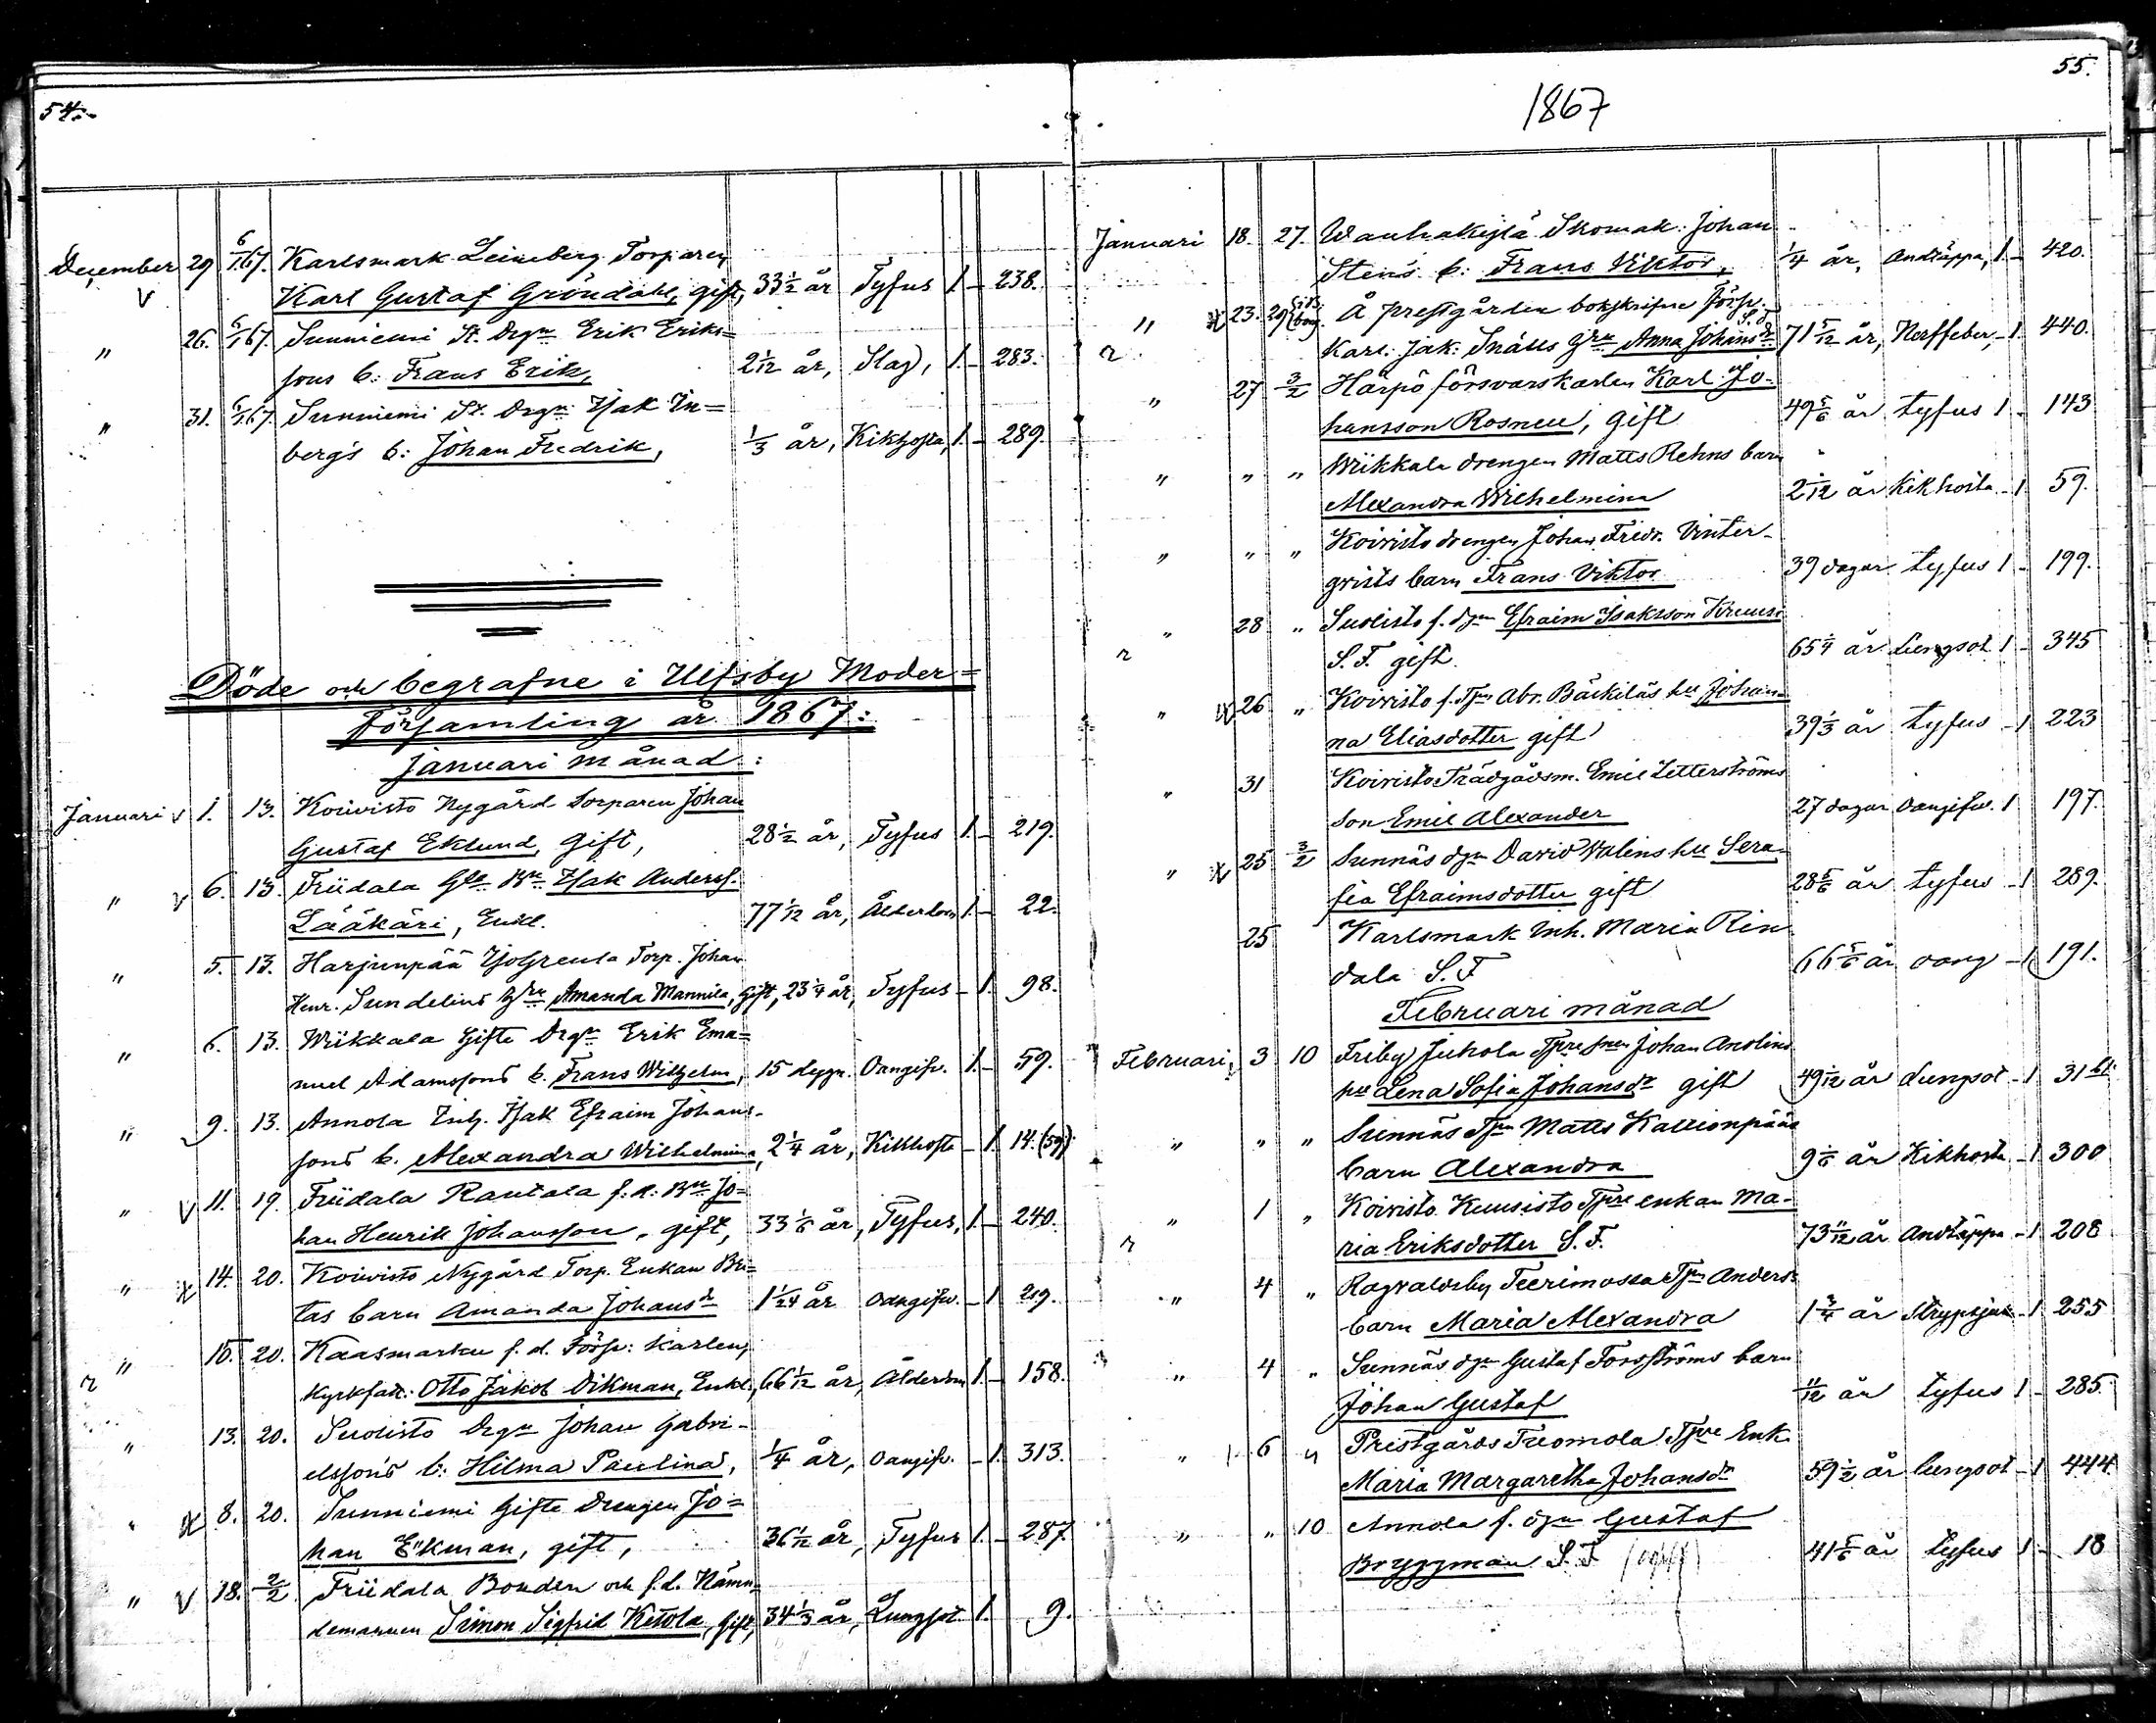 54.
December 29 6/1 67. Karlsmark Leineberg Torparen
Karl Gustaf Gröndahl, gift, 33 1/2 år Tyfus 1. – 238.
" 26. 6/1 67. Sunniemi St. Drgn Erik Eriks=
sons b: Frans Erik, 2 1/12 år, Slag, 1. – 283.
" 31. 6/1 67. Sunniemi St. Drgn Isak In=
bergs b: Johan Fredrik, 1/3 år, Kikhosta, 1. – 289.
Döde och begrafne i Ulfsby Moder=
församling år 1867:
Januari månad:
Januari v 1. 13. Koivisto Nygård torparen Johan
Gustaf Eklund, gift, 28 1/2 år, Tyfus 1. – 219.
" v 6. 13. Friidala Gle Bn Isak Anderss.
Lääkäri, Enkl. 77 1/12 år, Ålderdom 1. – 22.
" 5. 13. Harjunpää Torp. Johan
Henr. Sundelins Hru Amanda Mannila, Gift, 23 1/4 år, Tyfus – 1. 98.
" 6. 13. Wiikkala Gifte Drgn Erik Ema=
nuel Adamssons b. Frans Wilhelm, 15 dygn. Oangifv. 1. – 59.
" 9. 13. Annola Inh. Isak Efraim Johans=
sons b. Alexandra Wilhelmina, 2 1/4 år, Kikhosta – 1. 14. (59).
" v 11. 19. Friidala Rautala f.d. Bn Jo=
han Henrik Johansson, gift, 33 1/6 år, Tyfus, 1. – 240.
" x 14. 20. Koivisto Nygård Torp. Enkan Bri=
tas barn Amanda Johansdr 1 1/24 år oangifv. – 1 219.
" 10. 20. Kaasmarku f.d. Förs: karlen,
r kyrkfatt: Otto Jakob Dikman, Enkl, 66 1/12 år, Ålderdom 1. – 158.
" 13. 20. Suolisto Drgn Johan Gabri=
elssons b: Hilma Paulina, 1/4 år, oangifv. – 1. 313.
" x 8. 20. Sunniemi Gifte Drengen Jo=
han Ekman, gift, 36 1/12 år, Tyfus 1. – 287.
" v 18. 2/2 Friidala Bonden och f.d. Nämn=
demannen Simon Sigfrid Ketola, Gift, 34 1/3 år, Lungsot 1. 9.
55.
1867
Januari 18. 27. Wanhakylä Skomak: Johan
Stens b: Frans Viktor, 1/4 år, Andtäppa, 1. – 420.
" x 23. 29 Å prestgården bokskrifne Förs.
r Karl: Jak: Snälls Hru Anna Johansdr S.F. 71 5/12 år, Nerffeber, – 1. 440.
" 27 3/2 Harpö försvarskarlen Karl Jo-
hansson Rosnell, gift 49 5/6 år tyfus 1 – 143
" " " Wiikkala drengen Matts Rehns barn
Alexandra Wilhelmina 2 1/12 år Kikhosta – 1 59.
" " " Koivisto drengen Johan Fredr. Vinter-
qvists barn Frans Viktor 39 dagar tyfus 1 – 199.
" 28 " Suolisto f. dgn Efraim Isaksson
r S.F. gift. 65 1/4 år Lungsot 1 – 345
" x 26 " Koivisto f. Tpn Abr. Bäckiläs hu Johan-
na Eliasdotter gift 39 1/3 år tyfus – 1 223
" 31 Koivisto Trädgådsm. Emil Zetterströms
son Emil Alexander 27 dagar oangifv. 1 197.
" x 25 3/2 Sunnäs dgn David Valens hu Sera-
fia Efraimsdotter gift 28 5/6 år tyfus – 1 289.
25 Karlsmark inh. Maria Rin
dala S.F 66 5/6 år oang – 1 191.
Februari månad
Februari, 3 10 Friby Juhola Johan Anolins
hu Lena Sofia Johansdr gift 49 1/12 år Lungsot – 1 31
" " " Sunnäs Tpn Matts Kallionpääs
barn Alexandra 9 1/6 år Kikhosta – 1 300
" 1 " Koivisto Kuusisto Tpre enkan Ma-
r ria Eriksdotter S.F. 73 11/12 år Andtäppa – 1 208
" 4 " Ragvaldsby Teerimossa Tpn Anders
barn Maria Alexandra 1 3/4 år Strypsjuk – 1 255
" 4 " Sunnäs dgn Gustaf Forsströms barn
Johan Gustaf 11/12 år tyfus 1 – 285.
" 6 " Prestgårds Tuomola Tpre Enk.
Maria Margaretha Johansdr 59 1/2 år lungsot – 1 444
" " 10 Annola f. dgn Gustaf
Bryggman S.F. (ogift) 41 5/6 år tyfus 1 – 18